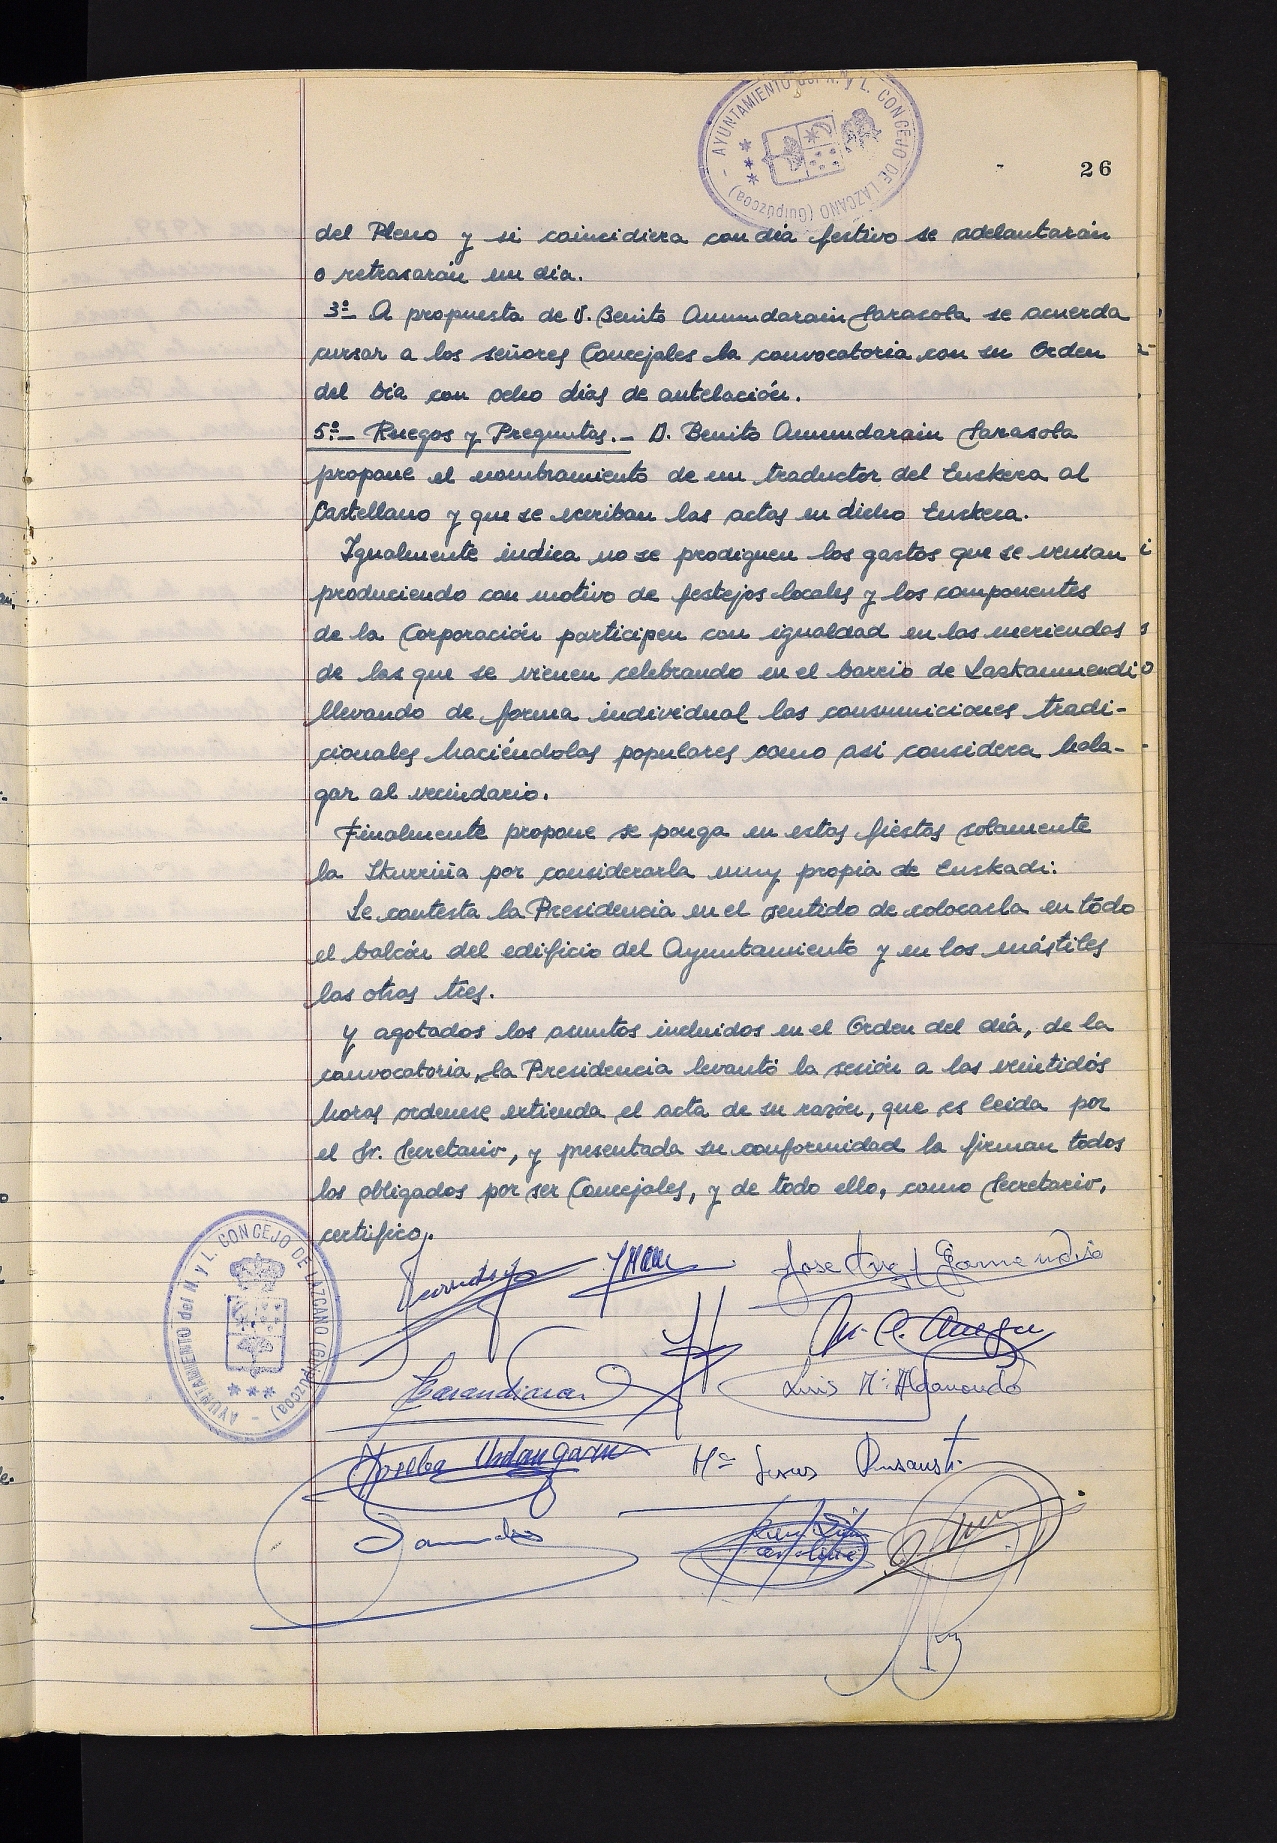 AYUNTAMIENTO del N. y L. CONCEJO DE LAZCANO (Guipúzcoa)
26
del Pleno y si coincidiera con día festivo se adelantarán
o retrasarán un día.
3º- A propuesta de D. Benito Amundarain Sarasola se acuerda
cursar a los señores Concejales la convocatoria con su Orden
del Día con ocho días de antelación.
5º- Ruegos y Preguntas.- D. Benito Amundarain Sarasola
propone el nombramiento de un traductor del Euskera al
Castellano y que se escriban las actas en dicho Euskera.
Igualmente indica no se prodiguen los gastos que se venian
produciendo con motivo de festejos locales y los componentes
de la Corporación participen con igualdad en las meriendas
de las que se vienen celebrando en el barrio de Lazkaumendi
llevando de forma individual las consumiciones tradi-
cionales haciéndolas populares como asi considera hala-
gar al vecindario.
Finalmente propone se ponga en estas fiestas solamente
la Ikurriña por considerarla muy propia de Euskadi:
Se contesta la Presidencia en el sentido de colocarla en todo
el balcón del edificio del Ayuntamiento y en los mástiles
las otras tres.
Y agotados los asuntos incluidos en el Orden del día, de la
convocatoria, la Presidencia levantó la sesión a las veintidós
horas ordenese extienda el acta de su razón, que es leida por
el Sr. Secretario, y presentada su conformidad la firman todos
los obligados por ser Concejales, y de todo ello, como Secretario,
certifico.
AYUNTAMIENTO del N. y L. CONCEJO DE LAZCANO (Guipúzcoa)
Jose Ang. Garmendia
Luis Mª Aldanondo
Joseba Urdangarin
Mª Jesus